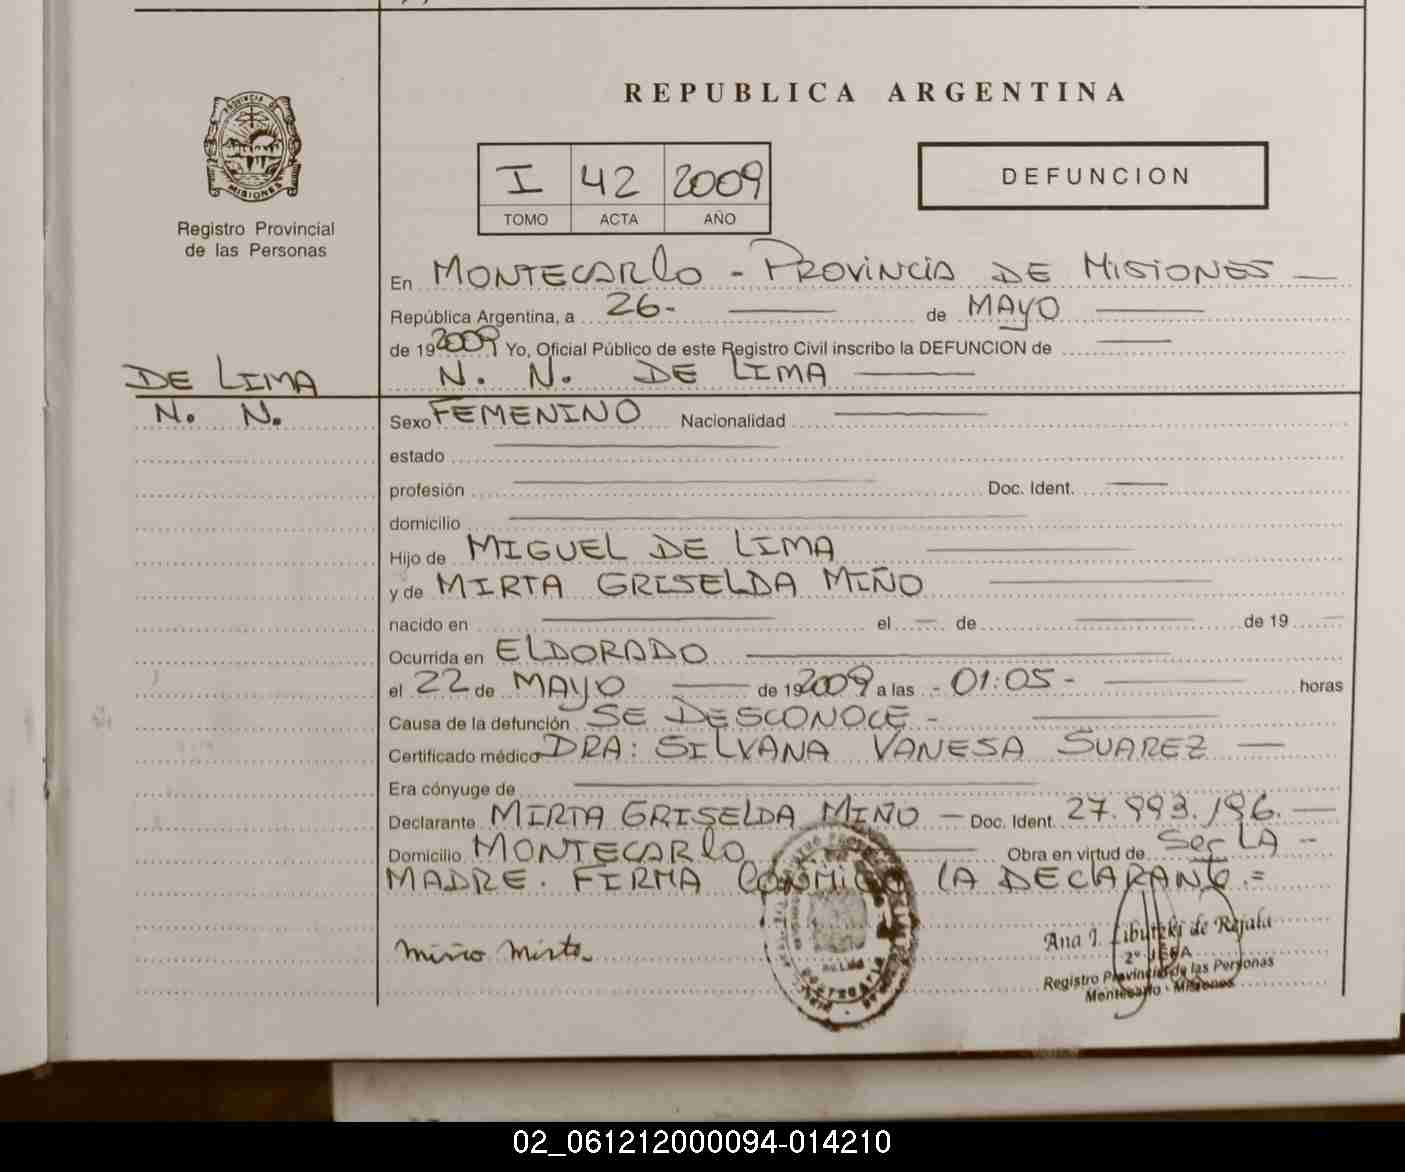 REPUBLICA ARGENTINA
PROVINCIA DE
MISIONES
Registro Provincial
de las Personas
I 42 2009
TOMO ACTA AÑO
DEFUNCION
En MONTECARLO - PROVINCIA DE MISIONES
República Argentina, a 26- de MAYO
de 19 2009 Yo, Oficial Público de este Registro Civil inscribo la DEFUNCION de
DE LIMA
N. N. DE LIMA
N. N.
Sexo FEMENINO Nacionalidad
estado
profesión Doc. Ident.
domicilio
Hijo de MIGUEL DE LIMA
y de MIRTA GRISELDA MIÑO
nacido en el de de 19
Ocurrida en ELDORADO
el 22 de MAYO de 19 2009 a las - 01:05 - horas
Causa de la defunción SE DESCONOCE -
Certificado médico DRA: SILVANA VANESA SUAREZ
Era cónyuge de
Declarante MIRTA GRISELDA MIÑO - Doc. Ident. 27.993.196.
Domicilio MONTECARLO Obra en virtud de Ser LA -
MADRE. FIRMA CONMIGO LA DECLARANTE.=
Miño Mirta
Ana I. de Rejala
2º JEFA
Registro Provincial de las Personas
Montecarlo - Misiones
02_061212000094-014210